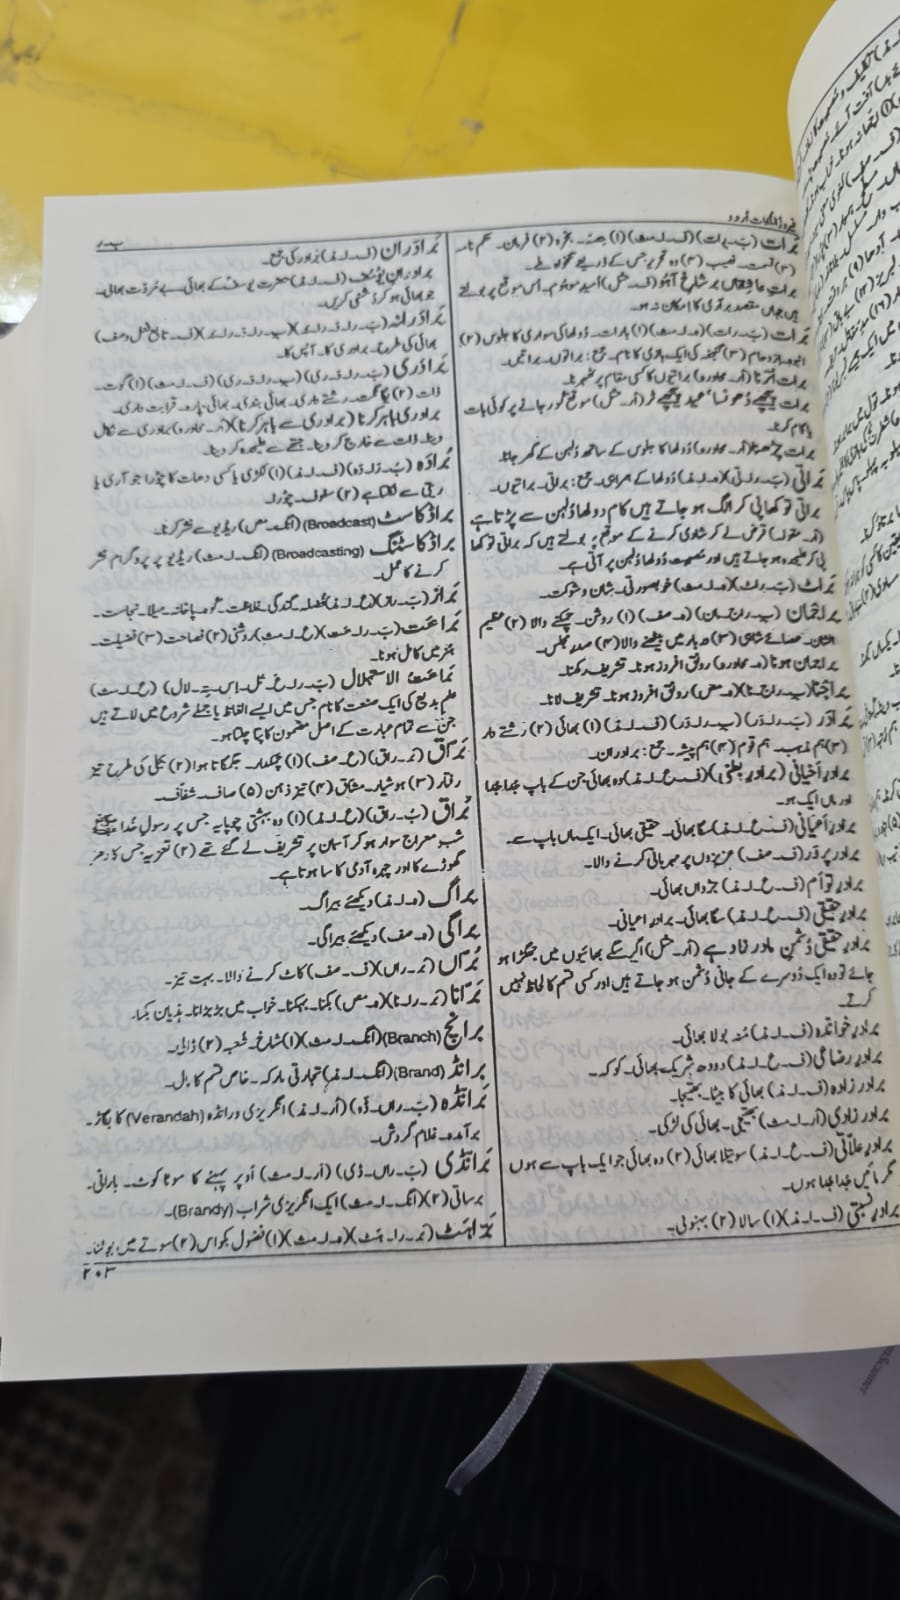 فیروز اللغات اردو
ب۔ر
برات (بَ۔رات)(ف۔ا۔مث)(۱) حِصّہ۔ بخرہ (۲) فرمان۔ حکم نامہ
(۳) قسمت۔ نصیب (۴) وہ تحریر جس کے ذریعے تنخواہ ملے۔
براتِ عاشقاں بر شاخِ آہُو (ف۔مثل) اُمیدِ موہوم۔ اس موقع پر بولتے
ہیں جہاں مقصد برآری کا امکان نہ ہو۔
برات (بَ۔رات)(ہ۔ا۔مث)(۱) بارات۔ دُولھا کی سواری کا جلوس (۲)
انبوہ۔ ازدحام (۳) گنجفہ کی ایک بازی کا نام۔ جمع: براتوں۔ براتیں۔
برات اُترنا (اُر۔محاورہ) براتیوں کا کسی مقام پر ٹھہرنا۔
برات پیچھے دھونسا عید پیچھے ٹر (اُر۔مثل) موقع گزر جانے پر کوئی بات
یا کام کرنا۔
برات چڑھنا (اُر۔محاورہ) دُولھا کا جلوس کے ساتھ دُلہن کے گھر جانا۔
براتی (بَ۔را۔تی)(ہ۔ا۔مذ) دُولھا کے ہمراہی۔ جمع: براتی۔ براتیوں۔
براتی تو کھا پی کر الگ ہو جاتے ہیں کام دولھا دُلہن سے پڑتا ہے
(اُر۔مقولہ) قرض لے کر شادی کرنے کے موقع پر بولتے ہیں کہ براتی تو کھا
پی کر علیحدہ ہو جاتے ہیں اور مصیبت دُولھا دُلہن پر آتی ہے۔
براٹ (بَ۔راٹ)(ہ۔ا۔مث) خوبصورتی۔ شان و شوکت۔
براجمان (بِ۔راج۔مان)(ہ۔صف)(۱) روشن۔ چمکنے والا (۲) عظیم
الشان۔ عصائے شاہی (۳) دربار میں بیٹھنے والا (۴) صدرِ مجلس۔
براجمان ہونا (ہ۔محاورہ) رونق افروز ہونا۔ تشریف رکھنا۔
براجنا (بِ۔راج۔نا)(ہ۔مص) رونق افروز ہونا۔ تشریف لانا۔
برادر (بَ۔را۔دَر)(بِ۔را۔دَر)(ف۔ا۔مذ)(۱) بھائی (۲) رشتے دار
(۳) ہم مذہب۔ ہم قوم (۴) ہم پیشہ۔ جمع: برادران۔
برادرِ اَخیافی (برادرِ بطنی)(ف۔ع۔ا۔مذ) وہ بھائی جن کے باپ جُدا جُدا
اور ماں ایک ہو۔
برادرِ اَعیانی (ف۔ع۔ا۔مذ) سگا بھائی۔ حقیقی بھائی۔ ایک ماں باپ سے۔
برادر پرور (ف۔صف) عزیزوں پر مہربانی کرنے والا۔
برادرِ توأم (ف۔ع۔ا۔مذ) جڑواں بھائی۔
برادرِ حقیقی (ف۔ع۔ا۔مذ) سگا بھائی۔ برادرِ اعیانی۔
برادرِ حقیقی دُشمنِ مادر زاد ہے (اُر۔مثل) اگر سگے بھائیوں میں جھگڑا ہو
جائے تو وہ ایک دُوسرے کے جانی دُشمن ہو جاتے ہیں اور کسی قسم کا لحاظ نہیں
کرتے۔
برادرِ خواندہ (ف۔ا۔مذ) مُنہ بولا بھائی۔
برادرِ رضاعی (ف۔ع۔ا۔مذ) دودھ شریک بھائی۔ کوکہ۔
برادر زادہ (ف۔ا۔مذ) بھائی کا بیٹا۔ بھتیجا۔
برادر زادی (اُر۔ا۔مث) بھتیجی۔ بھائی کی لڑکی۔
برادرِ علّاتی (ف۔ع۔ا۔مذ) سوتیلا بھائی (۲) وہ بھائی جو ایک باپ سے ہوں
مگر مائیں جُدا جُدا ہوں۔
برادرِ نسبتی (ف۔ا۔مذ)(۱) سالا (۲) بہنوئی۔
برادران (ف۔ا۔مذ) برادر کی جمع۔
برادرانِ یُوسف (ف۔ا۔مذ) حضرت یوسفؑ کے بھائی۔ بے مُروّت بھائی۔
جو بھائی ہو کر دُشمنی کریں۔
برادرانہ (بَ۔را۔دَ۔را۔نہ)(بِ۔را۔دَ۔را۔نہ)(ف۔تابع فعل۔صف)
بھائی کی طرح۔ برادری کا۔ آپس کا۔
برادری (بَ۔را۔دَ۔ری)(بِ۔را۔دَ۔ری)(ف۔ا۔مث)(۱) گوت۔
ذات (۲) یگانگت۔ رشتے داری۔ بھائی بندی۔ بھائی چارہ۔ قرابت داری۔
برادری باہر کرنا (برادری سے باہر کرنا)(اُر۔محاورہ) برادری سے نکال
دینا۔ ذات سے خارج کر دینا۔ جتھے سے علیحدہ کر دینا۔
برادہ (بُ۔را۔دَہ)(ف۔ا۔مذ)(۱) لکڑی یا کسی دھات کا چُورا جو آری یا
ریتی سے نکلتا ہے (۲) سفوف۔ چُورا۔
براڈ کاسٹ (Broadcast)(انگ۔مص) ریڈیو سے نشر کرنا۔
براڈ کاسٹنگ (Broadcasting)(انگ۔ا۔مث) ریڈیو پر پروگرام نشر
کرنے کا عمل۔
براز (بَ۔راز)(ع۔ا۔مذ) فُضلہ۔ گندگی۔ غلاظت۔ گُوہ۔ پاخانہ۔ میلا۔ نجاست۔
براعت (بَ۔را۔عَت)(ع۔ا۔مث) روشنی (۲) فصاحت (۳) فضیلت۔
ہنر میں کامل ہونا۔
براعتُ الاستہلال (بَ۔را۔عَ۔تُل۔اِس۔تِہ۔لال)(ع۔ا۔مث)
علمِ بدیع کی ایک صنعت کا نام جس میں ایسے الفاظ یا جملے شروع میں لاتے ہیں
جن سے تمام عبارت کے اصل مضمون کا پتا چلتا ہو۔
برّاق (بَر۔راق)(ع۔صف)(۱) چمکدار۔ جگمگاتا ہوا (۲) بجلی کی طرح تیز
رفتار (۳) ہوشیار۔ مشاق (۴) تیز ذہن (۵) صاف۔ شفّاف۔
بُراق (بُ۔راق)(ع۔ا۔مذ)(۱) وہ بہشتی چوپایہ جس پر رسولِ خُدا ﷺ
شبِ معراج سوار ہو کر آسمان پر تشریف لے گئے تھے (۲) تعزیہ جس کا دھڑ
گھوڑے کا اور چہرہ آدمی کا سا ہوتا ہے۔
براگ (ہ۔ا۔مذ) دیکھئے بیراگ۔
براگی (ہ۔صف) دیکھئے بیراگی۔
بُرّاں (بُر۔راں)(ف۔صف) کاٹ کرنے والا۔ بہت تیز۔
برّانا (بَر۔را۔نا)(ہ۔مص) بکنا۔ بہکنا۔ خواب میں بڑبڑانا۔ ہذیان بکنا۔
برانچ (Branch)(انگ۔ا۔مث)(۱) شاخ۔ شعبہ (۲) ڈالی۔
برانڈ (Brand)(انگ۔ا۔مذ) تجارتی مارکہ۔ خاص قسم کا مال۔
برانڈہ (بَ۔راں۔ڈَہ)(اُر۔ا۔مذ) انگریزی ورانڈہ (Verandah) کا بگاڑ۔
برآمدہ۔ غلام گردش۔
برانڈی (بَ۔راں۔ڈی)(اُر۔ا۔مث) اُوپر پہننے کا موٹا کوٹ۔ بارانی۔
برساتی (۲)(انگ۔ا۔مث) ایک انگریزی شراب (Brandy)۔
برّاہٹ (بَر۔را۔ہَٹ)(ہ۔ا۔مث)(۱) فضول بکواس (۲) سوتے میں بولنا۔
۲۰۳